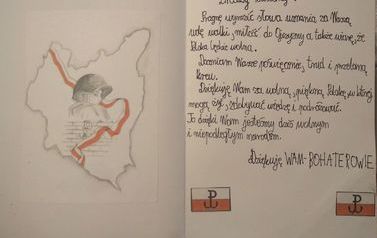 Pragnę wyrazić słowa uznania za Waszą
wolę walki, miłość do Ojczyzny a także wiarę, że
Polska będzie wolna.
Doceniam Wasze poświęcenie, trud i przelaną
krew.
Dziękuję Wam za wolną, piękną Polskę, w której
mogę żyć, zdobywać wiedzę i podróżować.
To dzięki Wam jesteśmy dziś wolnym
i niepodległym narodem.
Dziękuję WAM-BOHATEROWIE